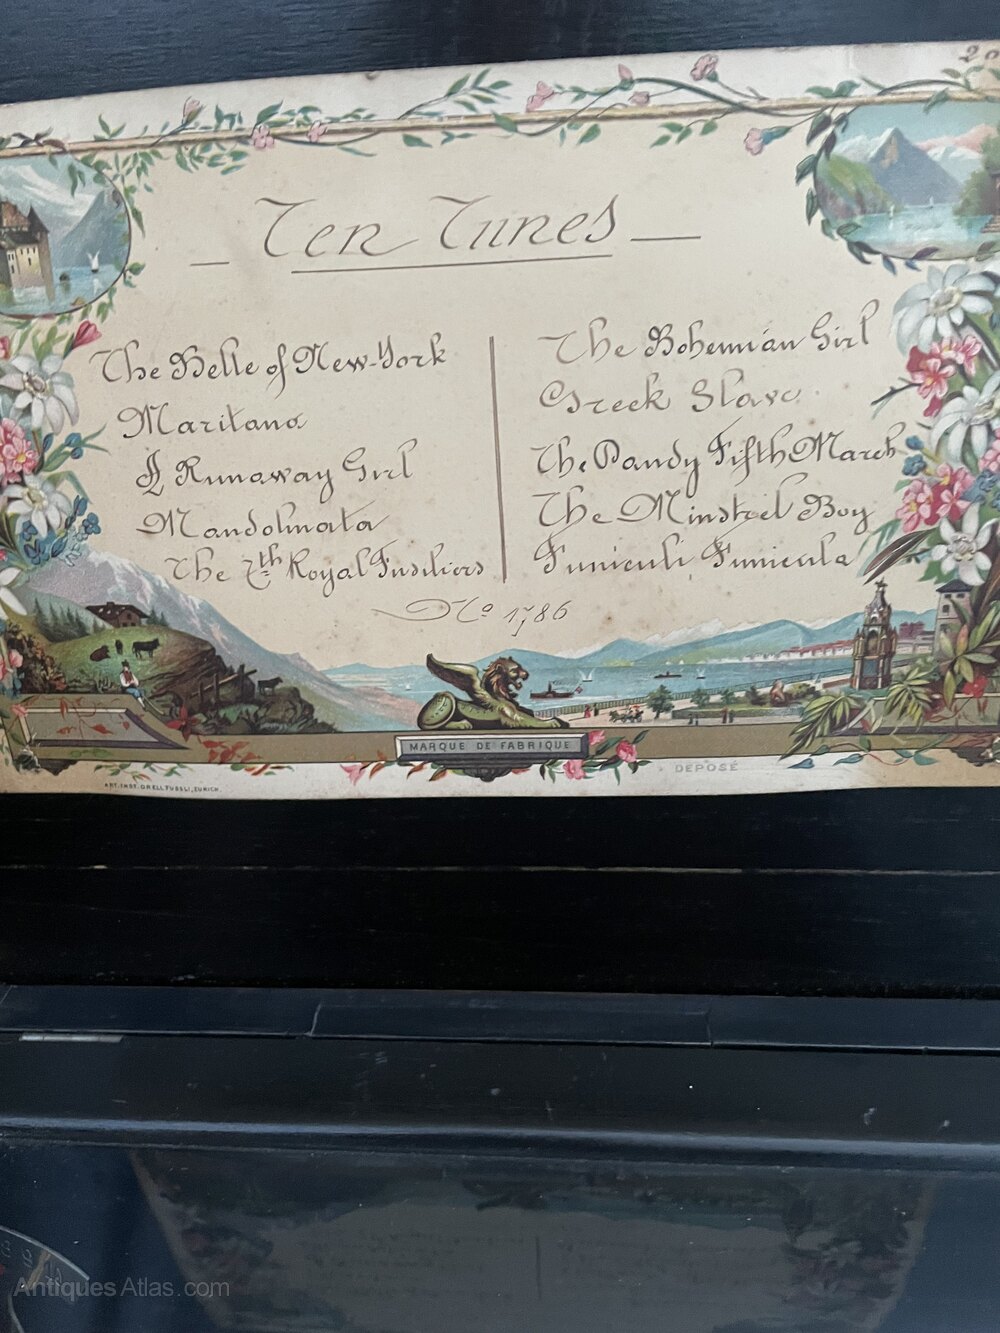 Ten Tunes
The Belle of New-York
Maritana
A Runaway Girl
Mandolinata
The 7th Royal Fusiliers
The Bohemian Girl
Greek Slave
The Dandy Fifth March
The Minstrel Boy
Funiculi Funicula
No 1786
MARQUE DE FABRIQUE
DEPOSÉ
ART. INST. ORELL FUSSLI, ZURICH.
Antiques Atlas.com